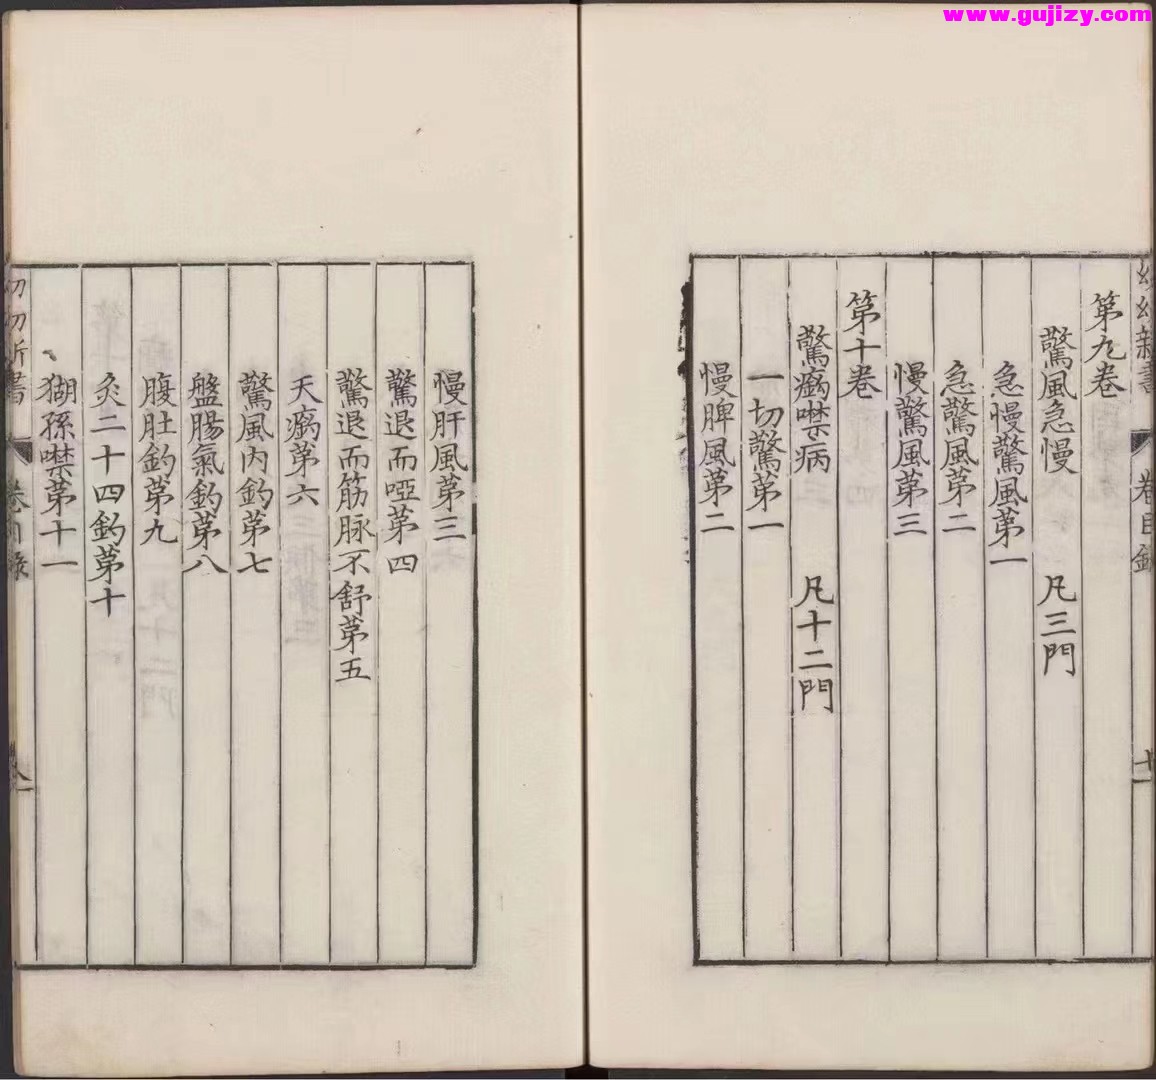 www.gujizy.com
幼幼新書 卷目錄 十一
第九卷
驚風急慢 凡三門
急慢驚風第一
急驚風第二
慢驚風第三
第十卷
驚癇噤病 凡十二門
一切驚第一
慢脾風第二
慢肝風第三
驚退而啞第四
驚退而筋脉不舒第五
天癇第六
驚風內釣第七
盤腸氣釣第八
腹肚釣第九
灸二十四釣第十
猢孫噤第十一